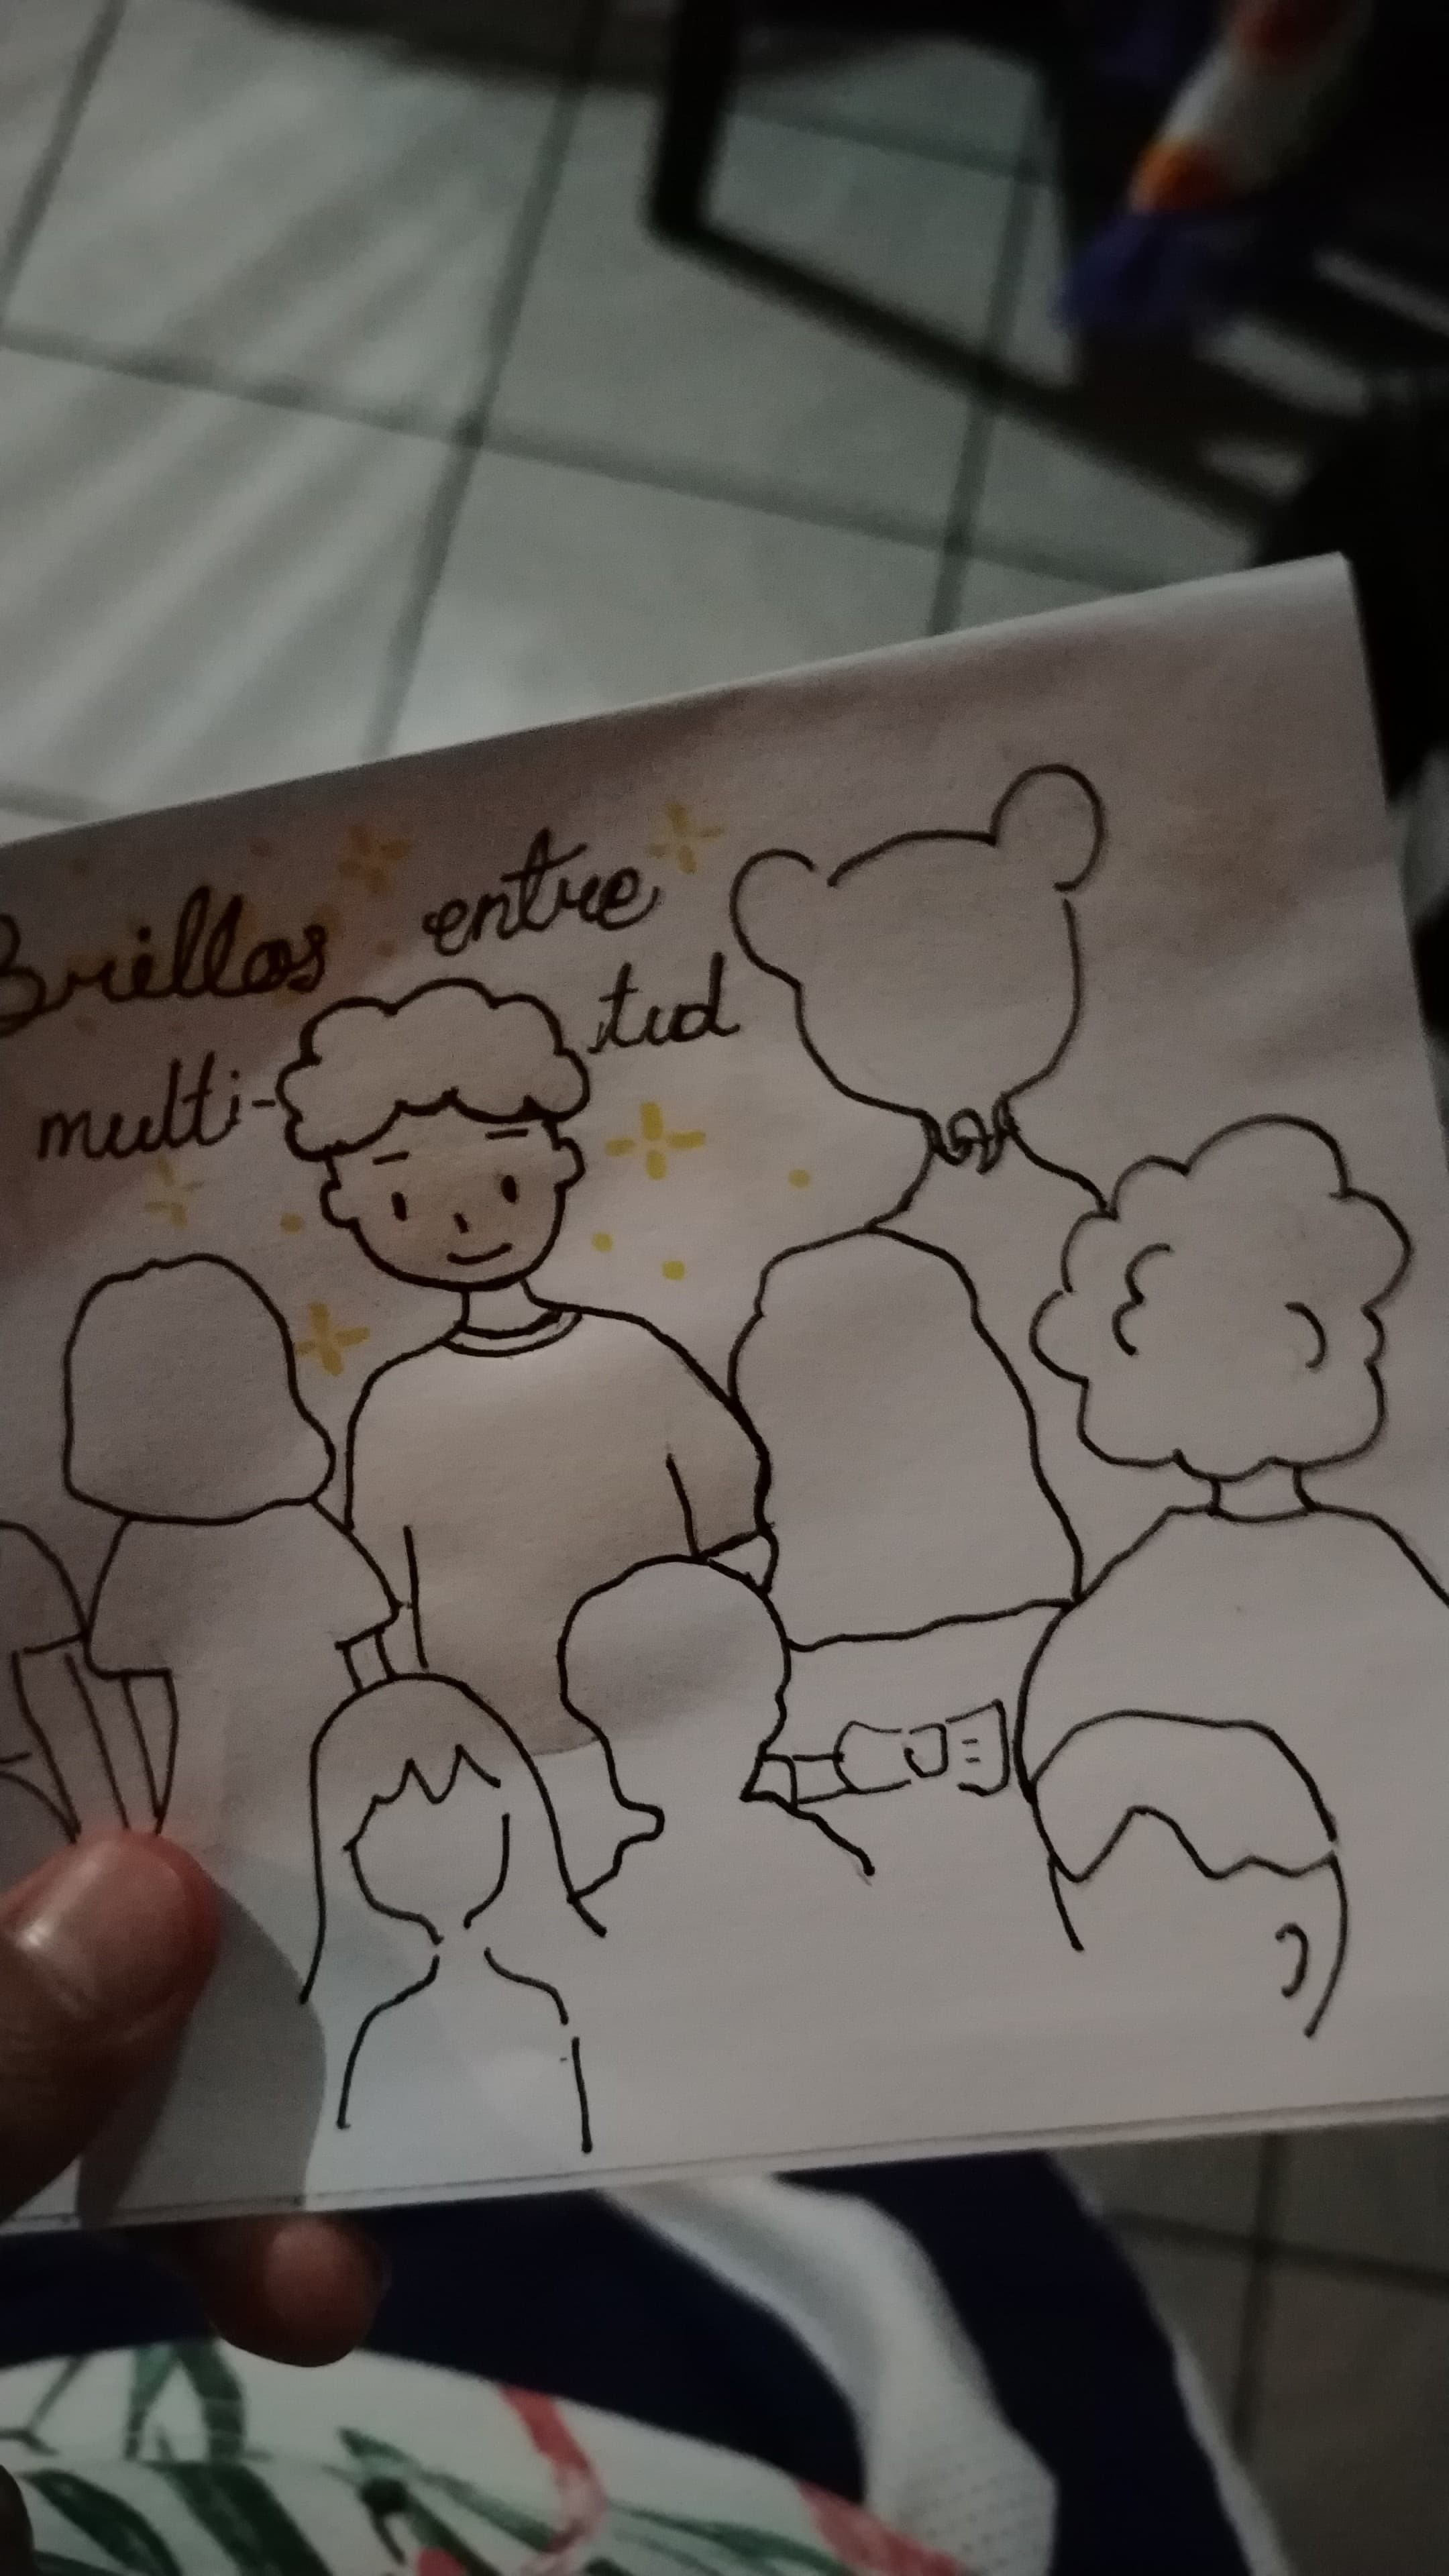 Brillas entre
multi-tud